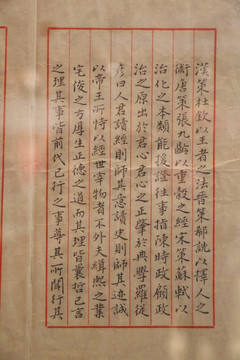 漢策杜欽以王者之法晉策郤詵以擇人之
術唐策張九齡以重縠之經宋策蘇軾以
治化之本類能援證往事指陳時政顧政
治之原出於君心君心之正肇於典學羅從
彥曰人君讀經則師其意讀史則師其迹誠
以帝王所恃以經世宰物者不外夫緝熙之業
宅俊之方厚生正德之道而其理皆曩哲已言
之理其事皆前代已行之事尊其所聞行其